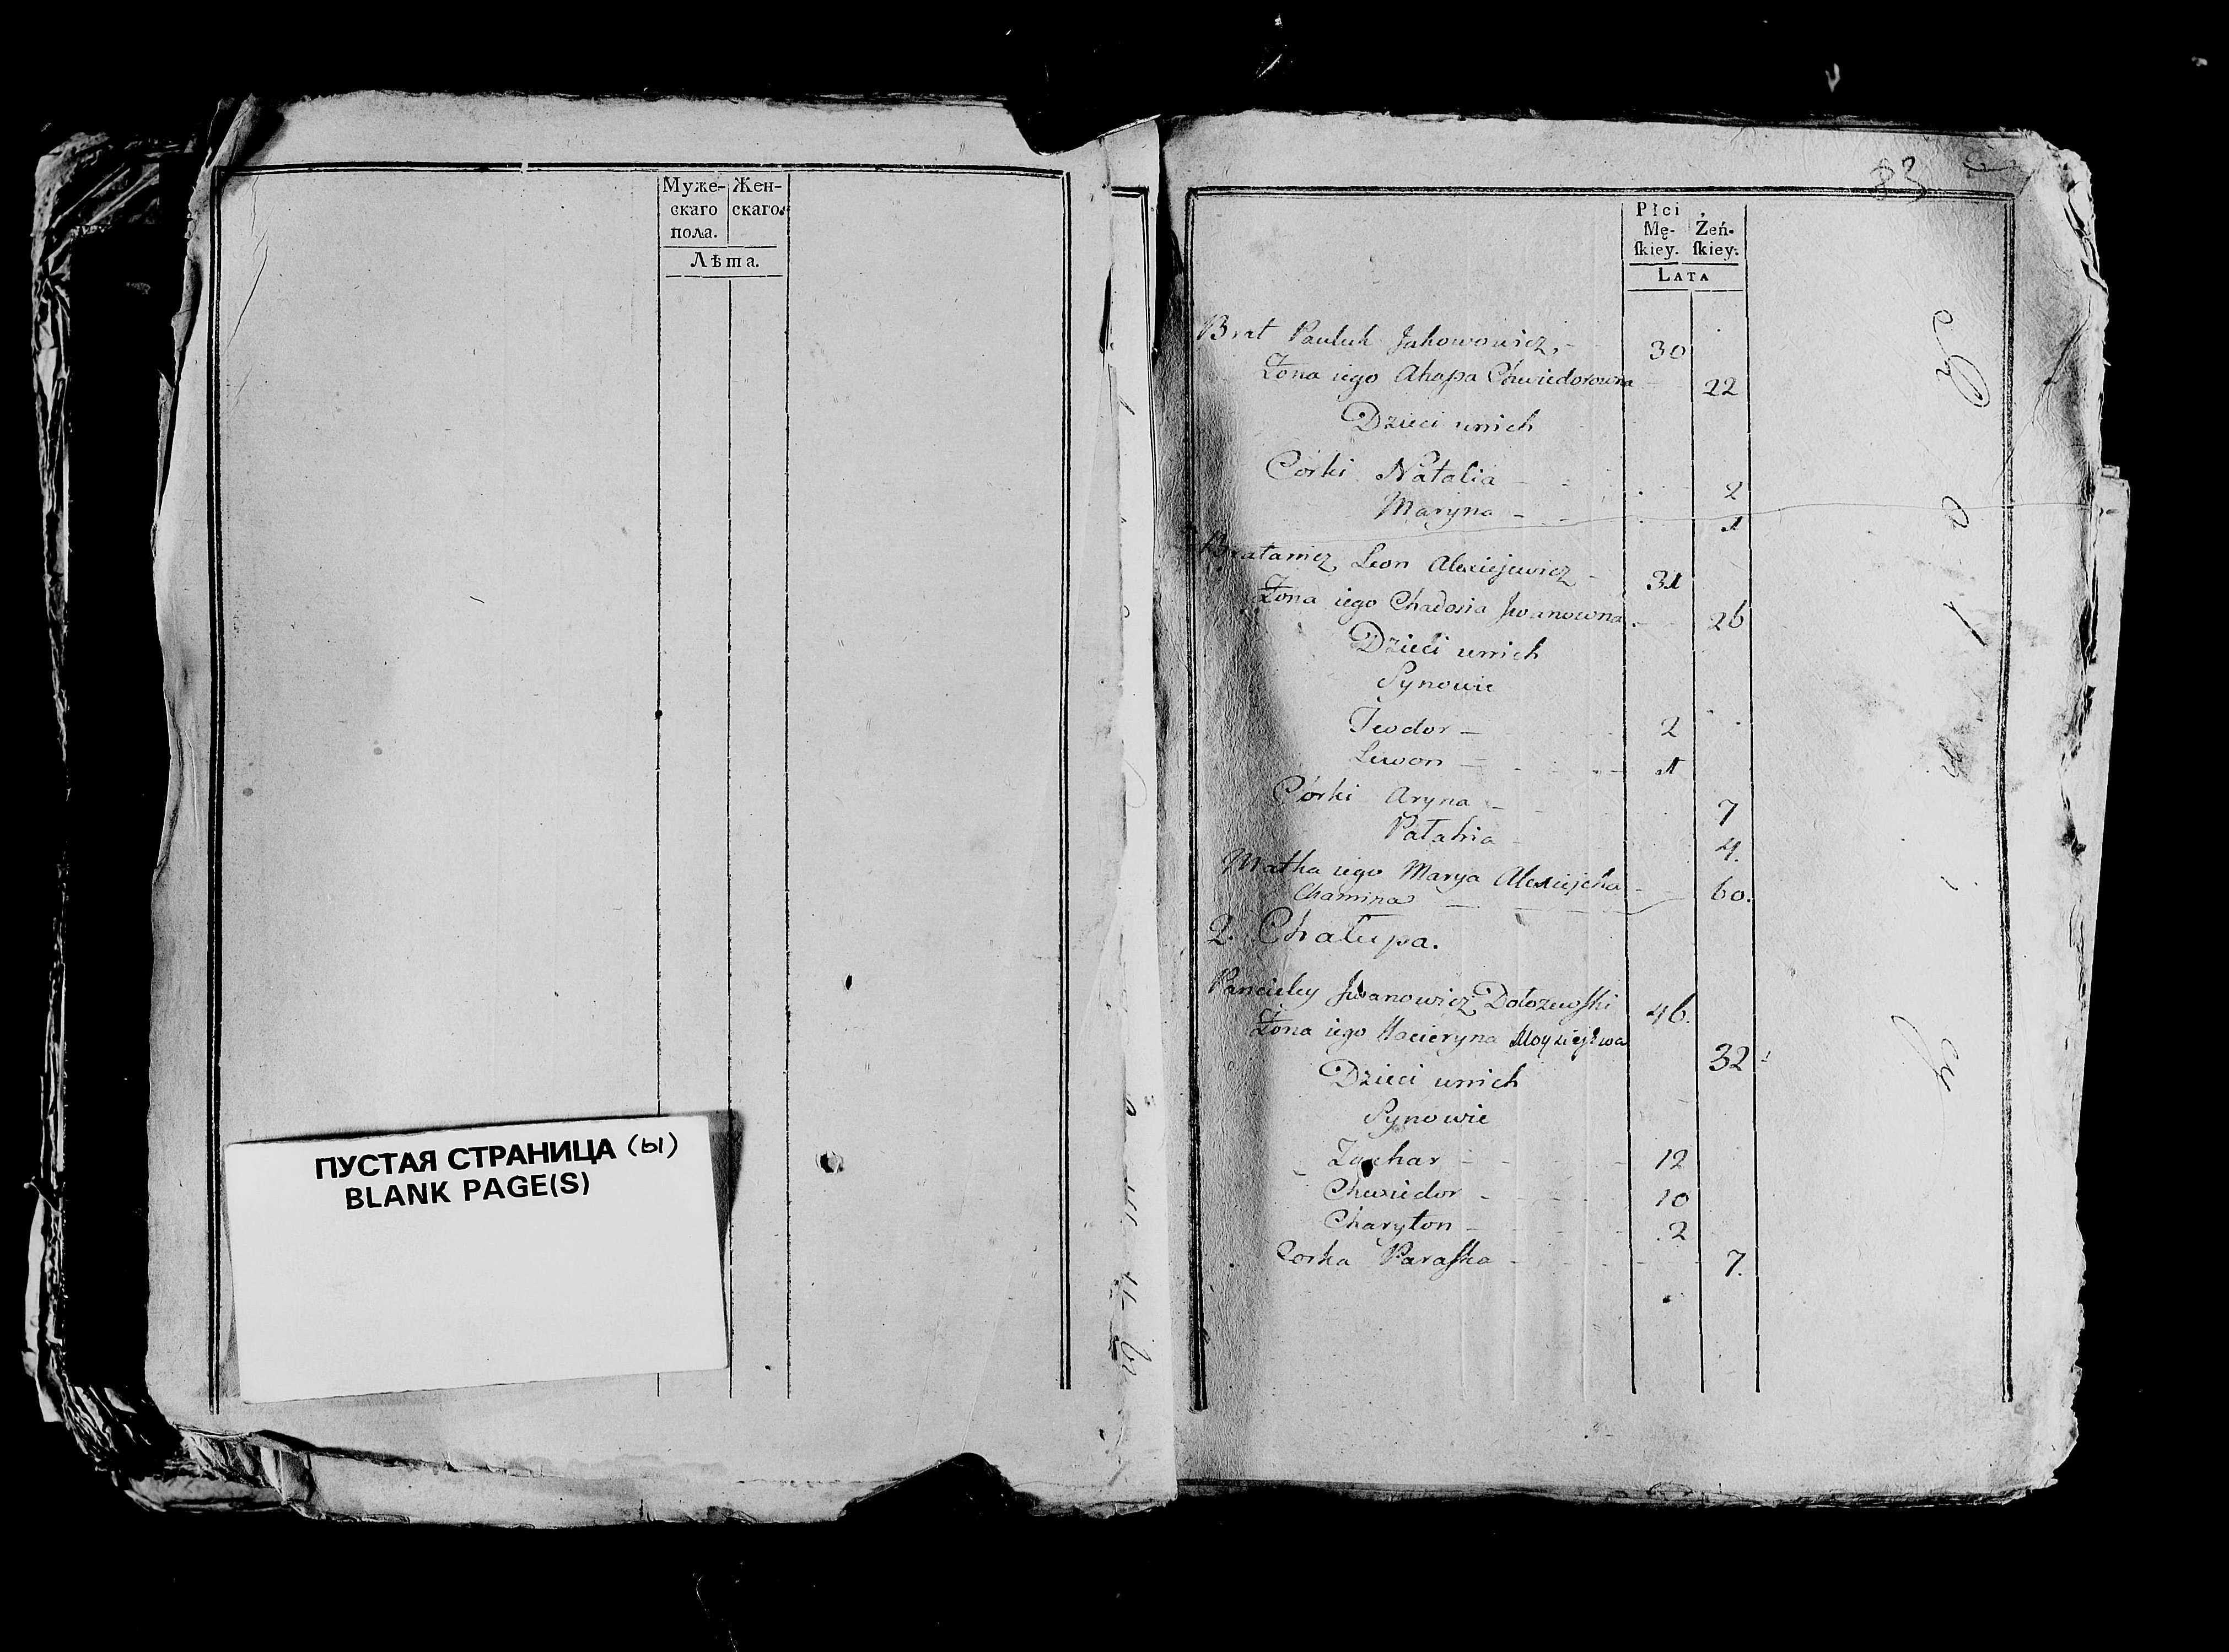 Муже- Жен-
скаго скаго.
пола.
Лѣта.
ПУСТАЯ СТРАНИЦА (ы)
BLANK PAGE(S)
83
Płci
Mę- Żeń-
ſkiey. ſkiey.
LATA
Brat Pauluk Jakowowicz 30
Żona iego Ahapa Chwiedorowna 22
Dzieci unich
Córki Natalia 2
Maryna 1
Bratanicz Leon Alexiejewicz 31
Żona iego Chadosia Jwanowna 26
Dzieci unich
Synowie
Teodor 2
Lewon 1
Córki Aryna 7
Pałahia 4.
Matka iego Marya Alexiejcha 60.
Chamina
2. Chałupa.
Pancieley Jwanowicz Dołozewſki 46.
Żona iego Kacieryna Moyziejewa 32
Dzieci unich
Synowie
Zachar 12
Chwiedor 10
Charyton 2
Corka Paraſka 7.